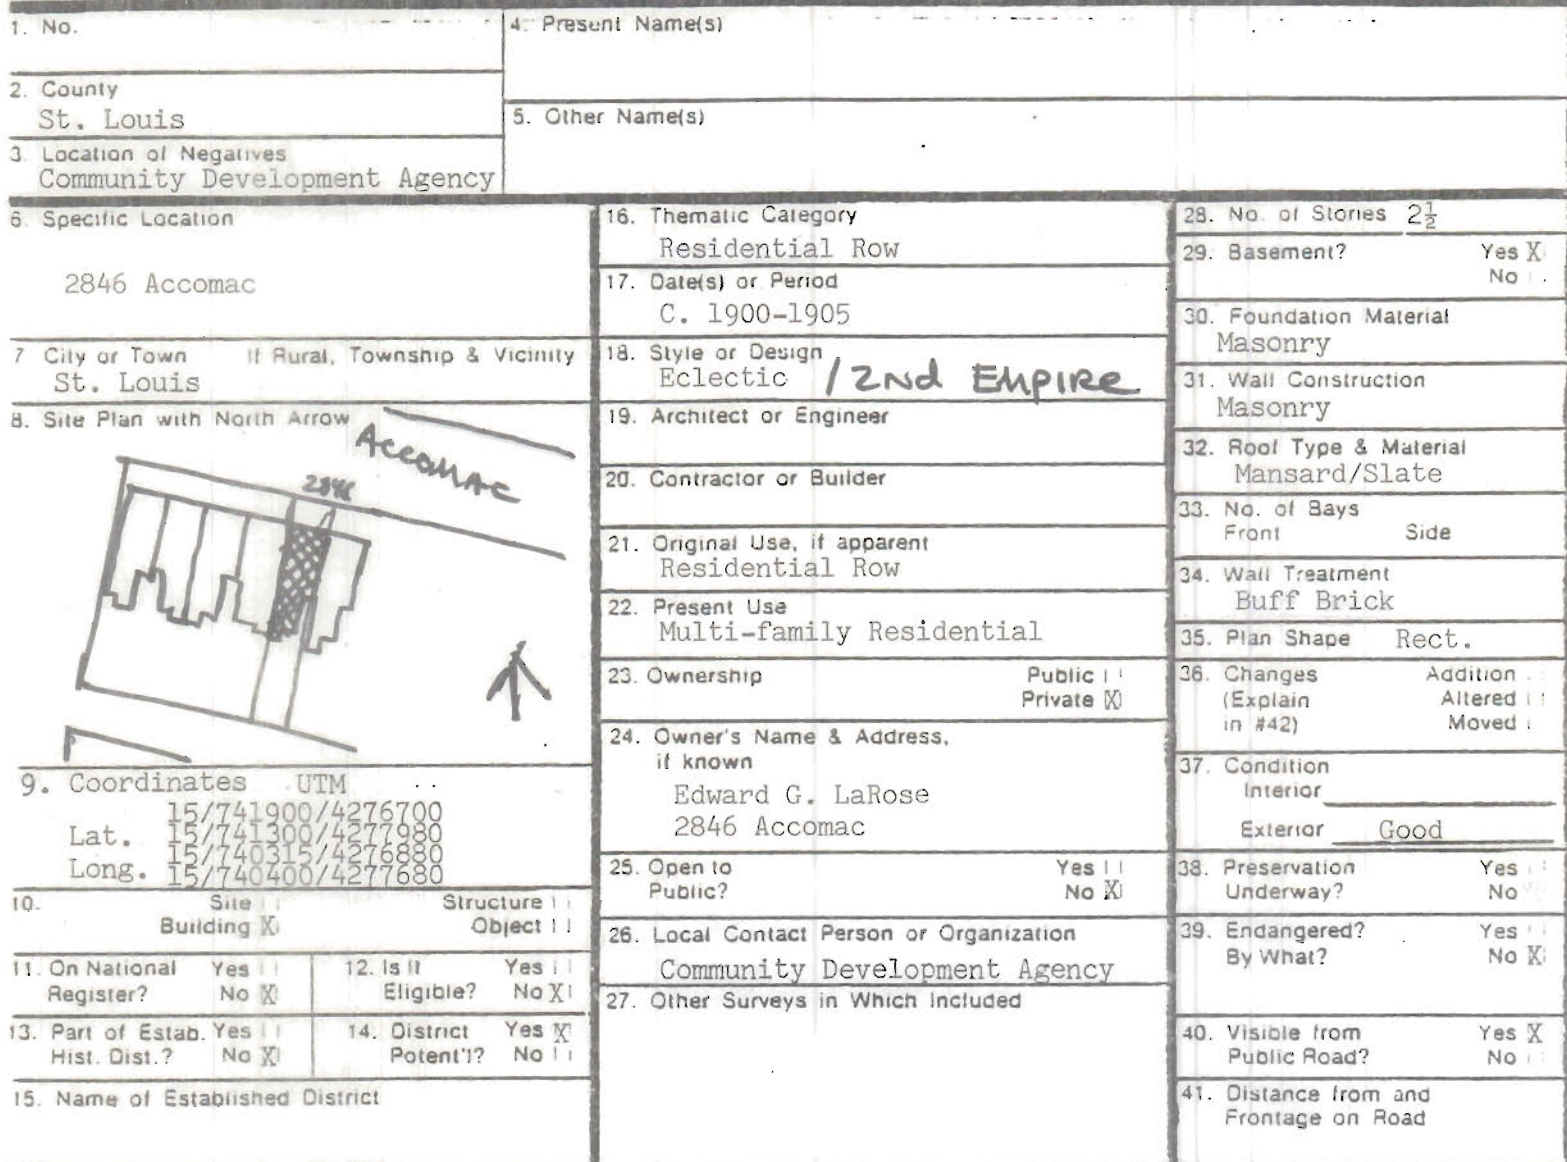 1. No.
2. County
St. Louis
3. Location of Negatives
Community Development Agency
4. Present Name(s)
5. Other Name(s)
6. Specific Location
2846 Accomac
7 City or Town    If Rural, Township & Vicinity
St. Louis
8. Site Plan with North Arrow
Accomac
2846
9. Coordinates    UTM
15/741900/4276700
Lat. 15/741300/4277980
15/740315/4276880
Long. 15/740400/4277680
10. Site    Structure
Building X    Object
11. On National Register? Yes    No X
12. Is It Eligible? Yes    No X
13. Part of Estab. Hist. Dist.? Yes    No X
14. District Potent'l? Yes X    No
15. Name of Established District
16. Thematic Category
Residential Row
17. Date(s) or Period
C. 1900-1905
18. Style or Design
Eclectic / 2nd EMPIRE
19. Architect or Engineer
20. Contractor or Builder
21. Original Use, if apparent
Residential Row
22. Present Use
Multi-family Residential
23. Ownership    Public
Private X
24. Owner's Name & Address,
if known
Edward G. LaRose
2846 Accomac
25. Open to    Yes
Public?    No X
26. Local Contact Person or Organization
Community Development Agency
27. Other Surveys in Which Included
28. No. of Stories 2½
29. Basement?    Yes X
No
30. Foundation Material
Masonry
31. Wall Construction
Masonry
32. Roof Type & Material
Mansard/Slate
33. No. of Bays
Front    Side
34. Wall Treatment
Buff Brick
35. Plan Shape    Rect.
36. Changes    Addition
(Explain    Altered
in #42)    Moved
37. Condition
Interior
Exterior    Good
38. Preservation    Yes
Underway?    No X
39. Endangered?    Yes
By What?    No X
40. Visible from    Yes X
Public Road?    No
41. Distance from and
Frontage on Road